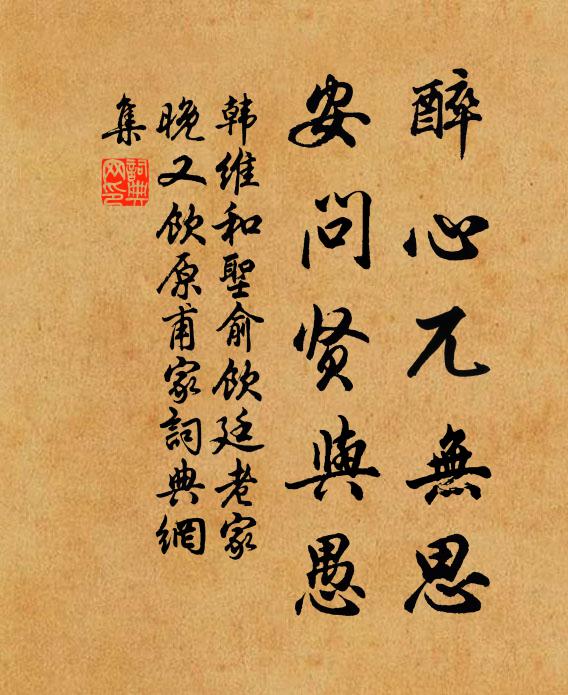 醉心兀無思
安问贤與愚
韩维和聖俞飲廷老家
晚又飲原甫家詞典網
集
詞典
网印